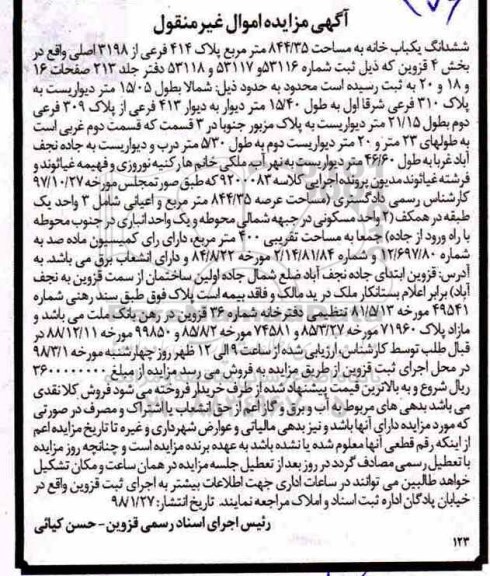 آگهی مزایده اموال غیرمنقول
ششدانگ یکباب خانه به مساحت ۸۴۴/۳۵ متر مربع پلاک ۴۱۴ فرعی از ۳۱۹۸ اصلی واقع در
بخش ۴ قزوین که ذیل ثبت شماره ۵۳۱۱۶ و ۵۳۱۱۷ و ۵۳۱۱۸ دفتر جلد ۲۱۳ صفحات ۱۶
و ۱۸ و ۲۰ به ثبت رسیده است محدود به حدود ذیل: شمالا بطول ۱۵/۰۵ متر دیواریست به
پلاک ۳۱۰ فرعی شرقا اول به طول ۱۵/۴۰ متر دیوار به دیوار ۴۱۳ فرعی از پلاک ۳۰۹ فرعی
دوم بطول ۲۱/۱۵ متر دیواریست به پلاک مزبور جنوبا در ۳ قسمت که قسمت دوم غربی است
به طولهای ۲۳ متر و ۲۰ متر دیواریست دوم به طول ۵/۳۰ متر درب و دیواریست به جاده نجف
آباد غربا به طول ۴۶/۶۰ متر دیواریست به نهر آب ملکی خانم ها رکنیه نوروزی و فهیمه غیاثوند و
فرشته غیاثوند مدیون پرونده اجرایی کلاسه ۹۲۰۰۰۸۳ که طبق صورتمجلس مورخه ۹۷/۱۰/۲۷
کارشناس رسمی دادگستری (مساحت عرصه ۸۴۴/۳۵ متر مربع و اعیانی شامل ۳ واحد یک
طبقه در همکف (۲ واحد مسکونی در جبهه شمالی محوطه و یک واحد انباری در جنوب محوطه
با راه ورود از جاده) جمعا به مساحت تقریبی ۴۰۰ متر مربع، دارای رای کمیسیون ماده صد به
شماره ۱۲/۶۹۷/۸۰ و شماره ۲/۱۴/۸۱/۸۴ مورخه ۸۴/۸/۲۲ و دارای انشعاب برق می باشد. به
آدرس: قزوین ابتدای جاده نجف آباد ضلع شمال جاده اولین ساختمان از سمت قزوین به نجف
آباد) برابر اعلام بستانکار ملک در ید مالک و فاقد بیمه است پلاک فوق طبق سند رهنی شماره
۴۹۵۴۱ مورخه ۸۱/۵/۱۳ تنظیمی دفترخانه شماره ۳۶ قزوین در رهن بانک ملت می باشد و
مازاد پلاک ۷۱۹۶۰ مورخه ۸۵/۳/۲۷ و ۷۴۵۸۱ مورخه ۸۵/۸/۲ و ۹۹۸۵۰ مورخه ۸۸/۱۲/۱۱ در
قبال طلب توسط کارشناس، ارزیابی شده از ساعت ۹ الی ۱۲ ظهر روز چهارشنبه مورخه ۹۸/۳/۱
در محل اجرای ثبت قزوین از طریق مزایده به فروش می رسد مزایده از مبلغ
ریال شروع و به بالاترین قیمت پیشنهاد شده از طرف خریدار فروخته می شود فروش کلا نقدی
می باشد بدهی های مربوط به آب و برق و گاز اعم از حق انشعاب یا اشتراک و مصرف در صورتی
که مورد مزایده دارای آنها باشد و نیز بدهی مالیاتی و عوارض شهرداری و غیره تا تاریخ مزایده اعم
از اینکه رقم قطعی آنها معلوم شده یا نشده باشد به عهده برنده مزایده است و چنانچه روز مزایده
با تعطیل رسمی مصادف گردد در روز بعد از تعطیل جلسه مزایده در همان ساعت و مکان تشکیل
خواهد طالبین می توانند در ساعات اداری جهت اطلاعات بیشتر به اجرای ثبت قزوین واقع در
خیابان پادگان اداره ثبت اسناد و املاک مراجعه نمایند. تاریخ انتشار: ۹۸/۱/۲۷
رئیس اجرای اسناد رسمی قزوین - حسن کیائی
۱۲۳